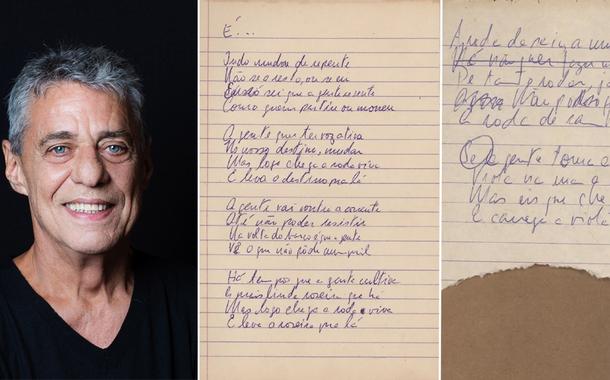 É...
Tudo mudou de repente
Não se o resto, ou se eu
Eu só sei que a gente sente
Como quem partiu ou morreu
A gente quer ter voz ativa
No nosso destino, mandar
Mas logo chega a roda viva
E leva o destino pra lá
A gente vai contra a corrente
Até não poder resistir
Na volta do barco é que a gente
Vê o que não pôde cumprir
Há tempo que a gente cultiva
A mais linda roseira que há
Mas logo chega a roda viva
E leva a roseira pra lá
A roda da saia a mu
não quer fazer
De tanto rodar ja
Não pod
A roda de sam
a gente toma
Viola na mão
Mas eis que che
E carrega a viola